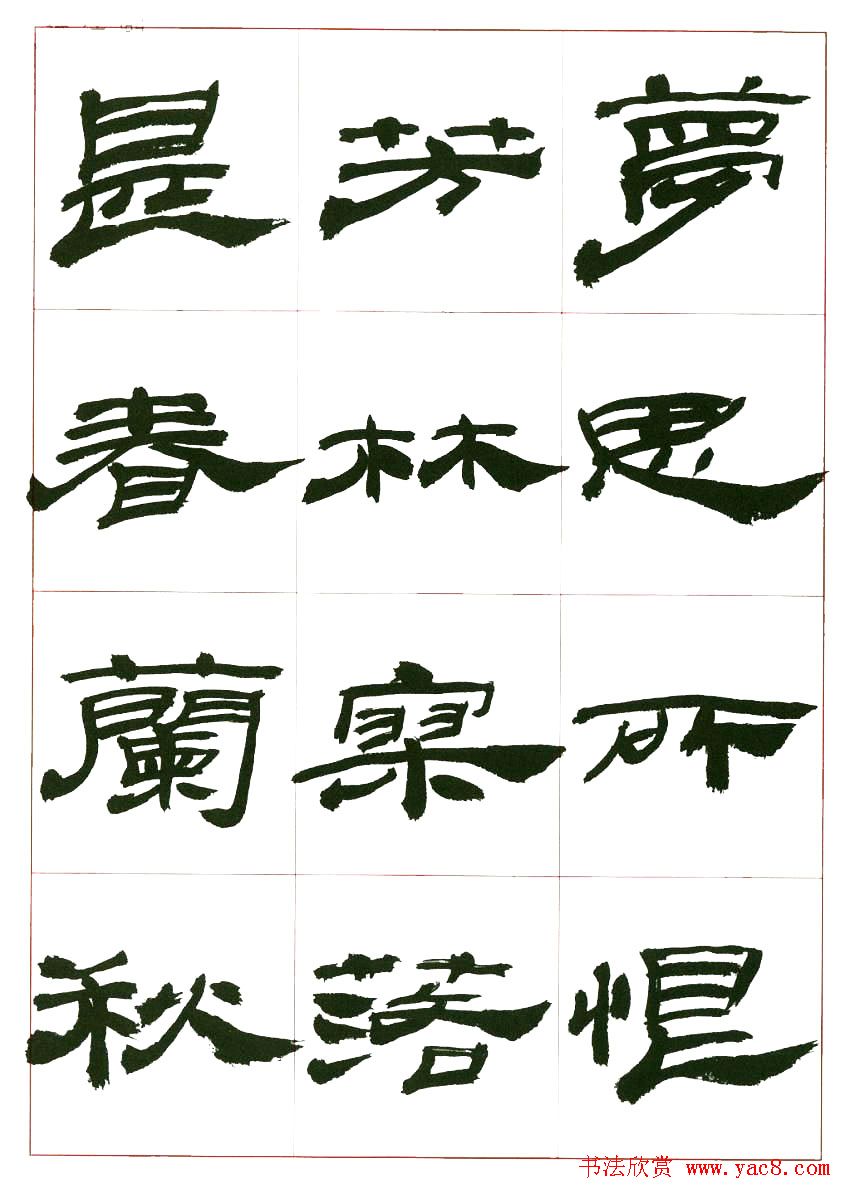 夢思所恨
芳林寥落
是春蘭秋
书法欣赏 www.yac8.com